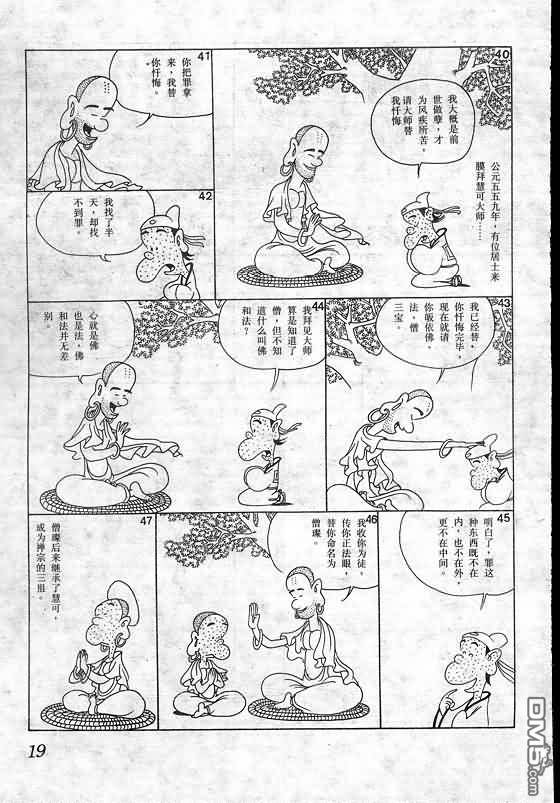 40
公元五五九年，有位居士来
膜拜慧可大师……
我大概是前
世做孽，才
为风疾所苦，
请大师替
我忏悔
41
你把罪拿
来，我替
你忏悔。
42
我找了半
天，却找
不到罪。
43
我已经替
你忏悔完毕，
现在就请
你皈依佛、
法、僧
三宝。
44
我拜见大师
算是知道了
僧，但不知
道什么叫佛
和法？
心就是佛
也是法，佛
和法并无差
别。
45
明白了，罪这
种东西既不在
内，也不在外，
更不在中间。
46
我收你为徒，
传你正法眼，
替你命名为
僧璨。
47
僧璨后来继承了慧可，
成为禅宗的三祖。
19
DM5
.com